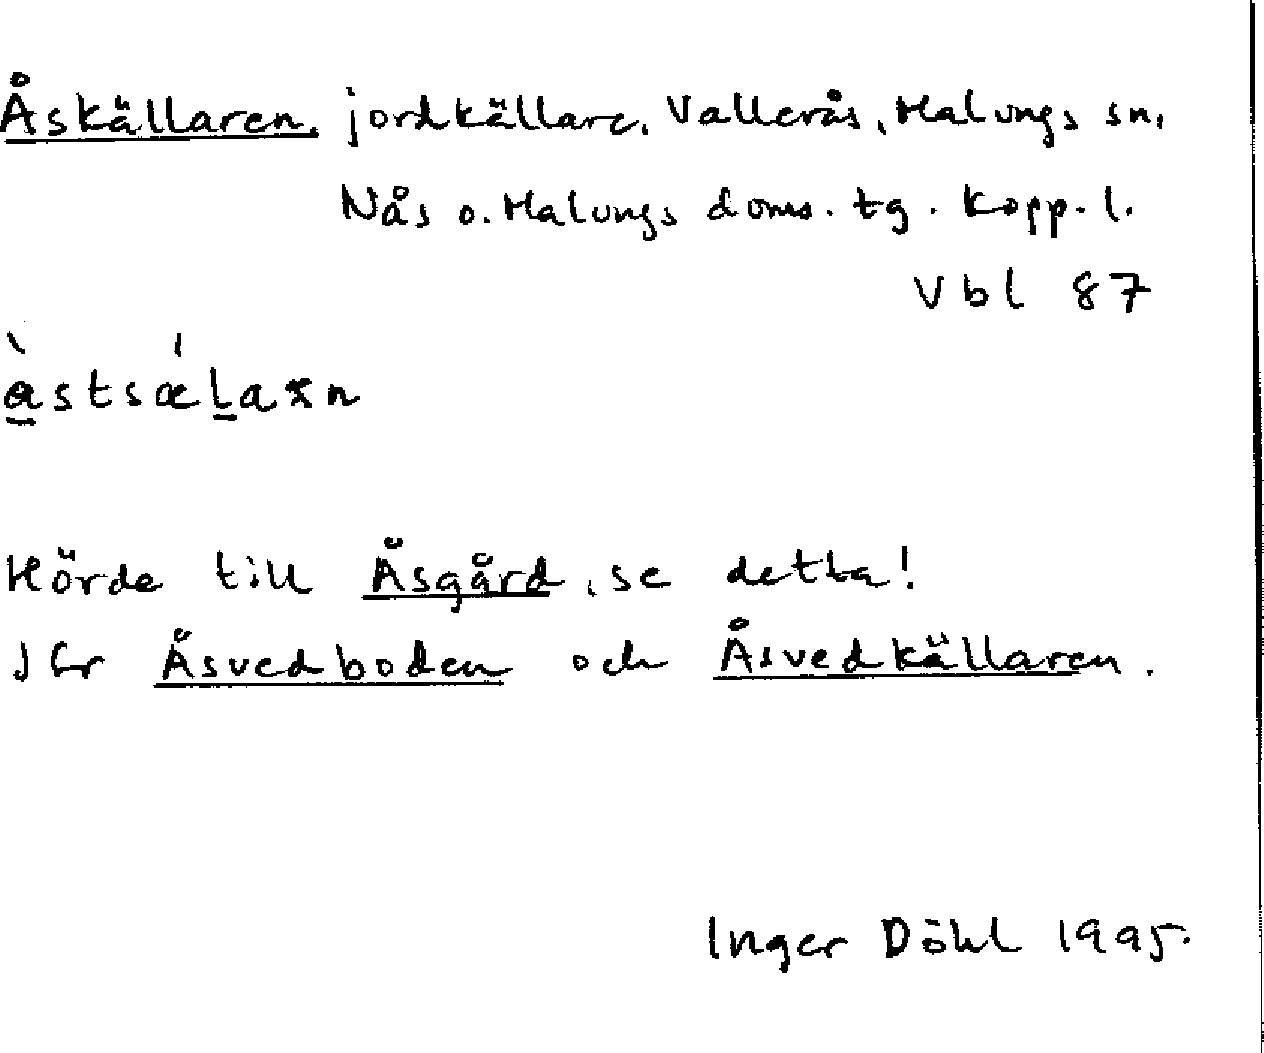 Åskällaren, jordkällare, Vallerås, Malungs sn,
Nås o. Malungs doms. tg. Kopp. l.
Vbl 87
Hörde till Åsgård, se detta!
Jfr Åsvedboden och Åsvedkällaren.
Inger Döhl 1995.